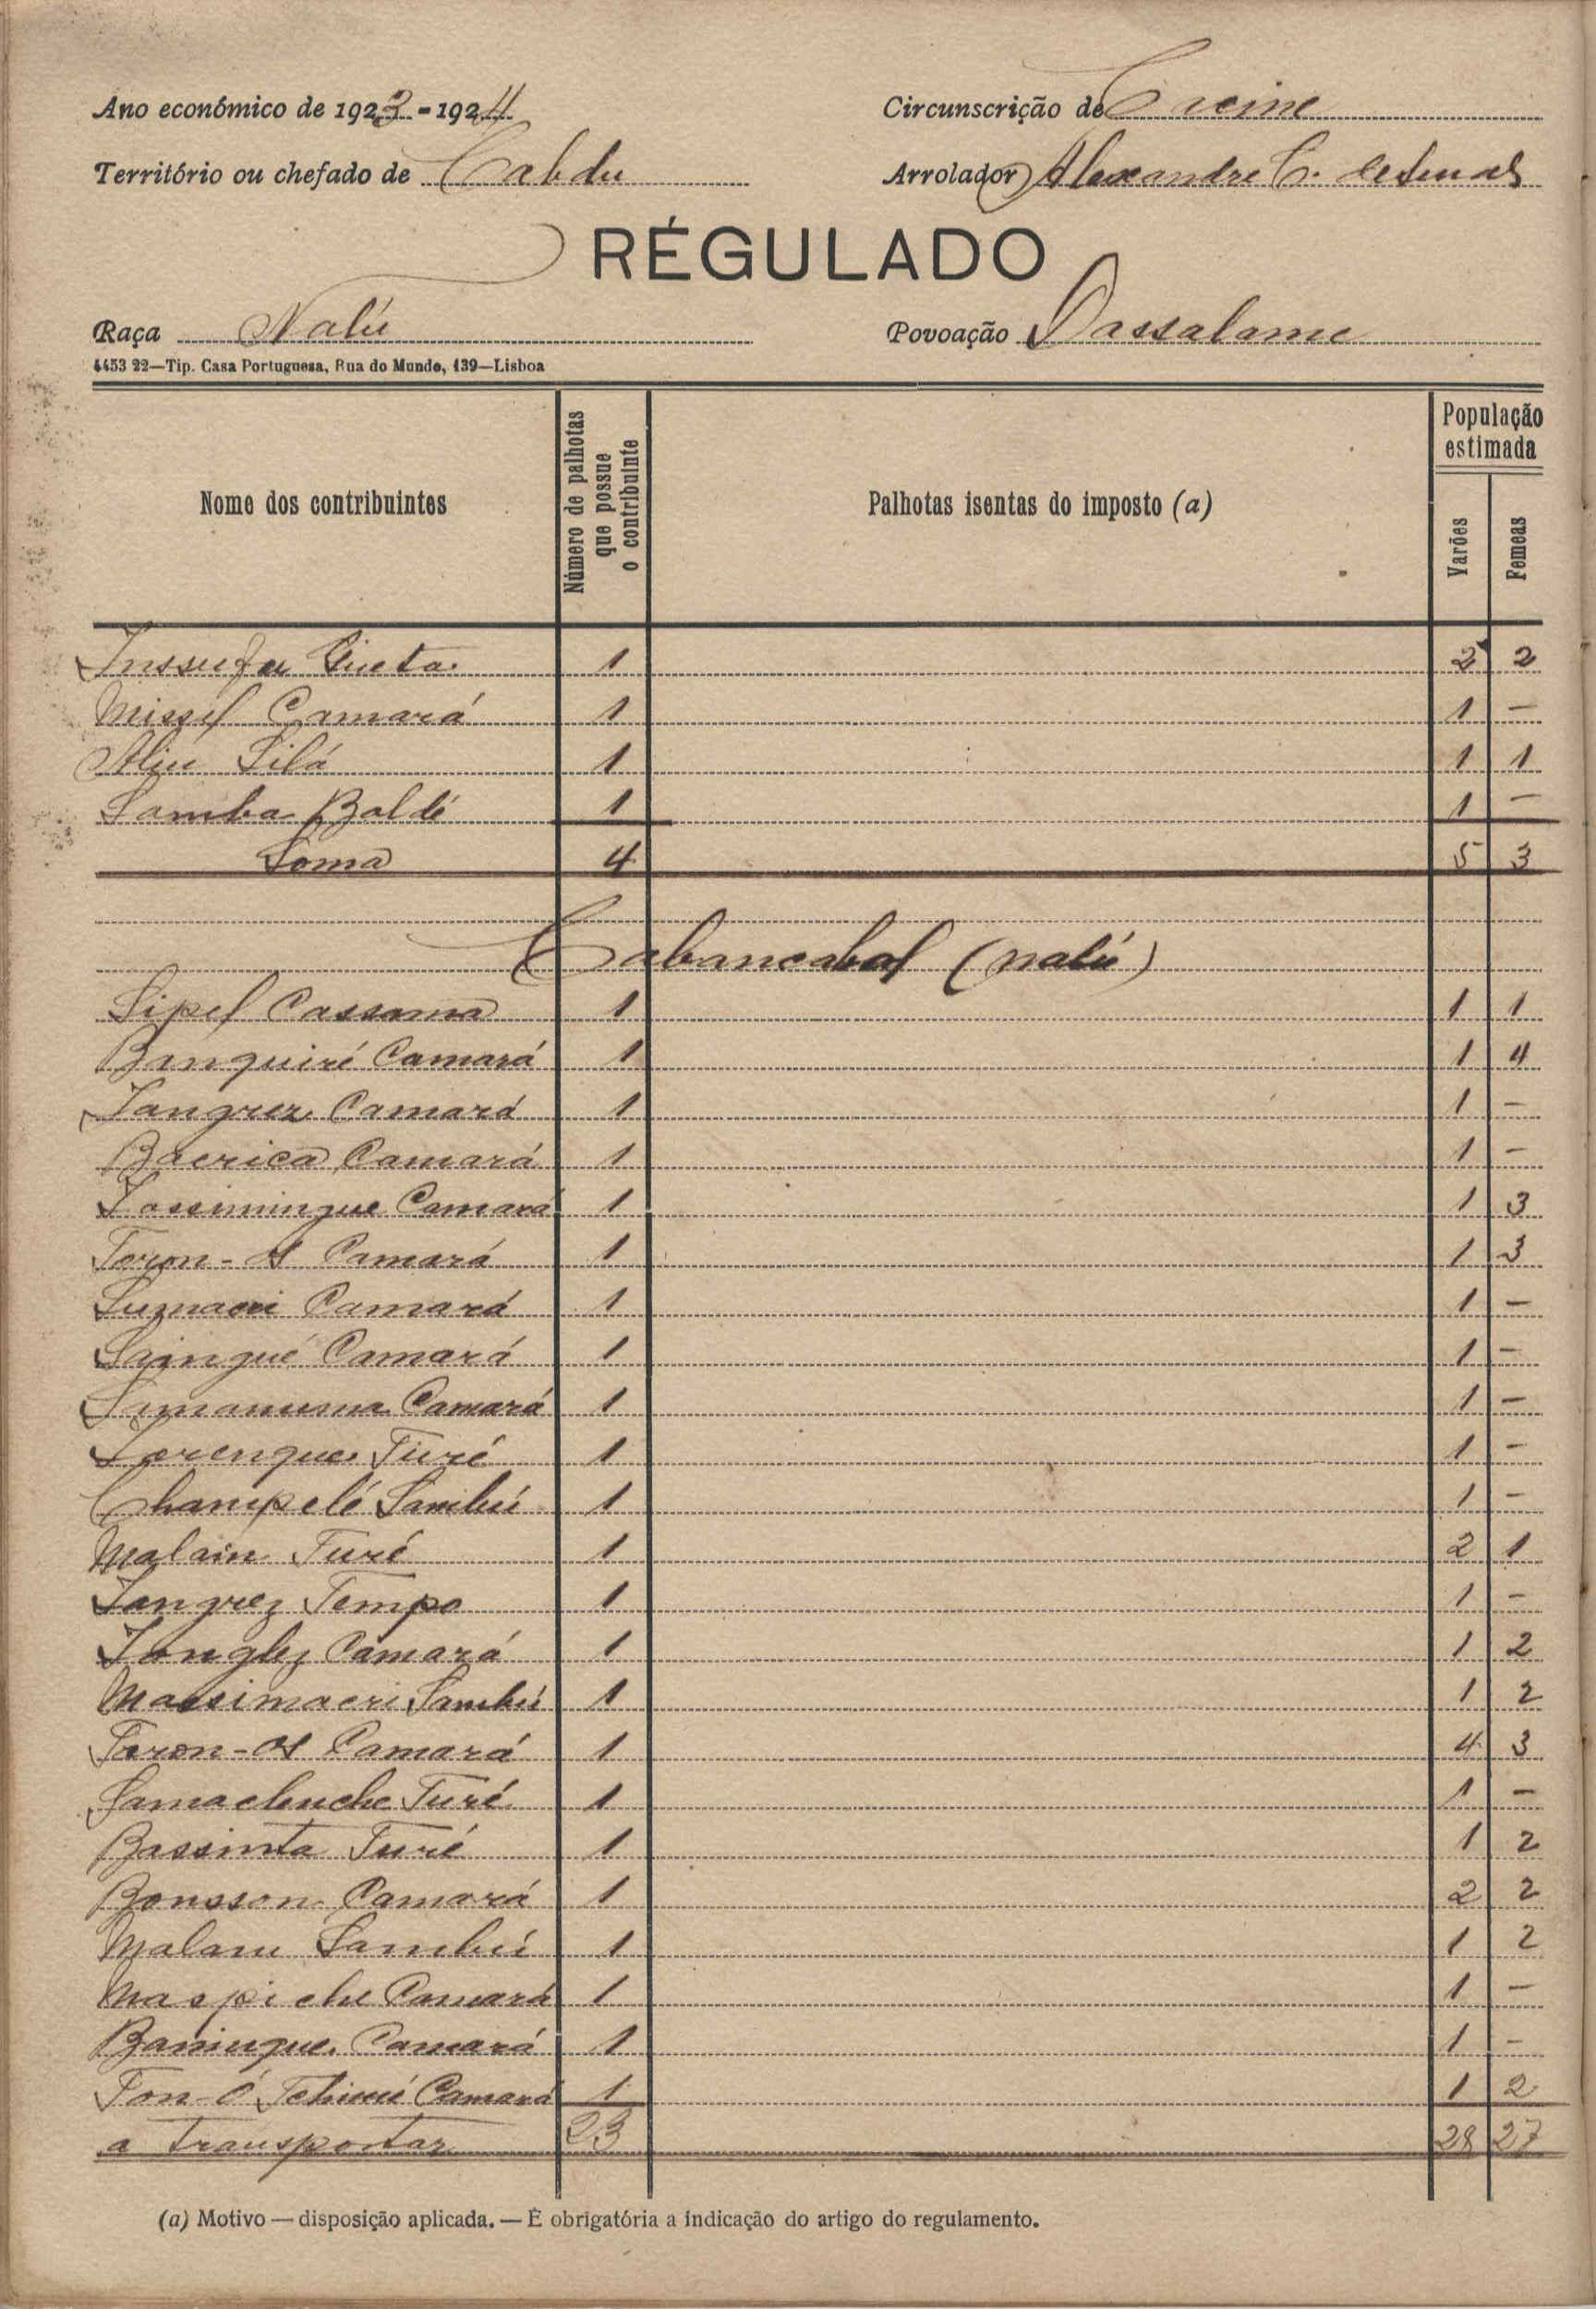 Ano económico de 1923-1924
Circunscrição de Cacine
Território ou chefado de Cabdu
Arrolador Alexandre C.
RÉGULADO
Raça Nalú
Povoação Dassalame
4453 22—Tip. Casa Portuguesa, Rua do Mundo, 139—Lisboa
Nome dos contribuintes
Número de palhotas que possue o contribuinte
Palhotas isentas do imposto (a)
População estimada
Varões
Femeas
Inssufu 1 2 2
Missel Camará 1 1 —
Aliu Silá 1 1 1
Samba Baldé 1 1 —
Soma 4 5 3
Cabancabal (nalú)
Sipel Cassama 1 1 1
Banquiré Camará 1 1 4
Tangrez Camará 1 1 —
Baerica Camará 1 1 —
Tassimingue Camará 1 1 3
Toron-os Camará 1 1 3
Sumacri Camará 1 1 —
Saingué Camará 1 1 —
Camará 1 1 —
Lorengue Turé 1 1 —
Champelé Sambú 1 1 —
Malain Turé 1 2 1
Tangrez Tempo 1 1 —
Tonglez Camará 1 1 2
Massimacri Sambú 1 1 2
Toron-os Camará 1 4 3
Samachuche Turé 1 1 —
Bassinta Turé 1 1 2
Bonsson Camará 1 2 2
Malam Sambú 1 1 2
Maspiche Camará 1 1 —
Baningue Camará 1 1 —
Ton-Ó Camará 1 1 2
a transportar 23 28 27
(a) Motivo — disposição aplicada. — É obrigatória a indicação do artigo do regulamento.